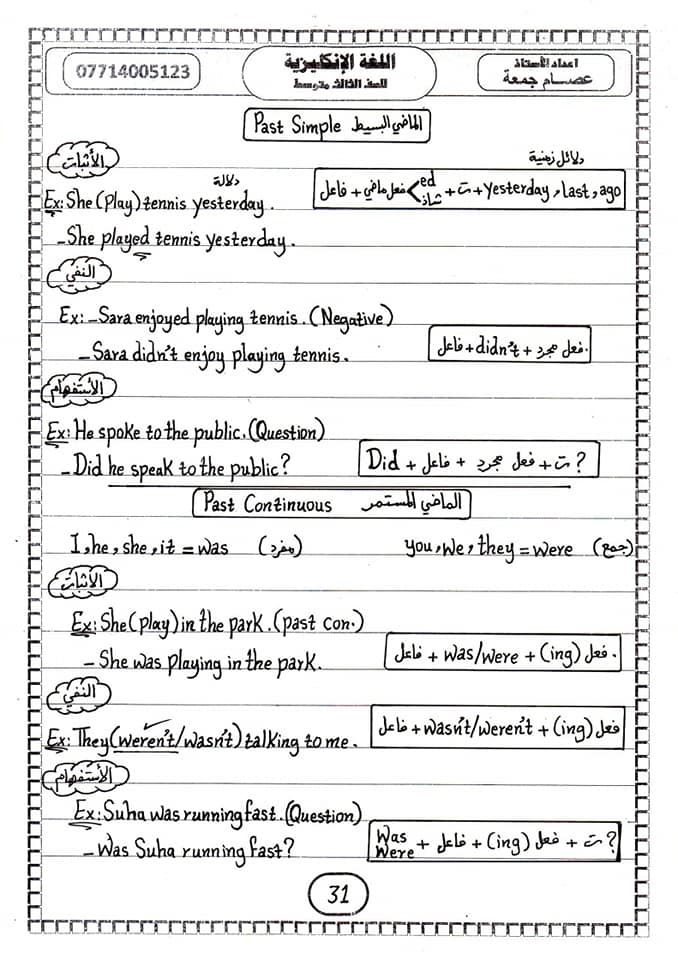 07714005123
اللغة الإنكليزية
للصف الثالث متوسط
اعداد الأستاذ
عصام جمعة
Past Simple الماضي البسيط
الأثبات
دلائل زمنية
فاعل + فعل ماضي < ed شاذ + ت + yesterday, last, ago
دلالة
Ex: She (play) tennis yesterday.
- She played tennis yesterday.
النفي
Ex: - Sara enjoyed playing tennis. (Negative)
- Sara didn't enjoy playing tennis.
فاعل + didn't + فعل مجرد.
الأستفهام
Ex: He spoke to the public. (Question)
- Did he speak to the public?
Did + فاعل + فعل مجرد + ت ?
Past Continuous الماضي المستمر
I, he, she, it = was (مفرد)
you, we, they = were (جمع)
الأثبات
Ex: She (play) in the park. (past con.)
- She was playing in the park.
فاعل + was/were + (ing) فعل.
النفي
Ex: They (weren't/wasn't) talking to me.
فاعل + wasn't/weren't + (ing) فعل
الأستفهام
Ex: Suha was running fast. (Question)
- Was Suha running fast?
Was Were + فاعل + (ing) فعل + ت ?
31